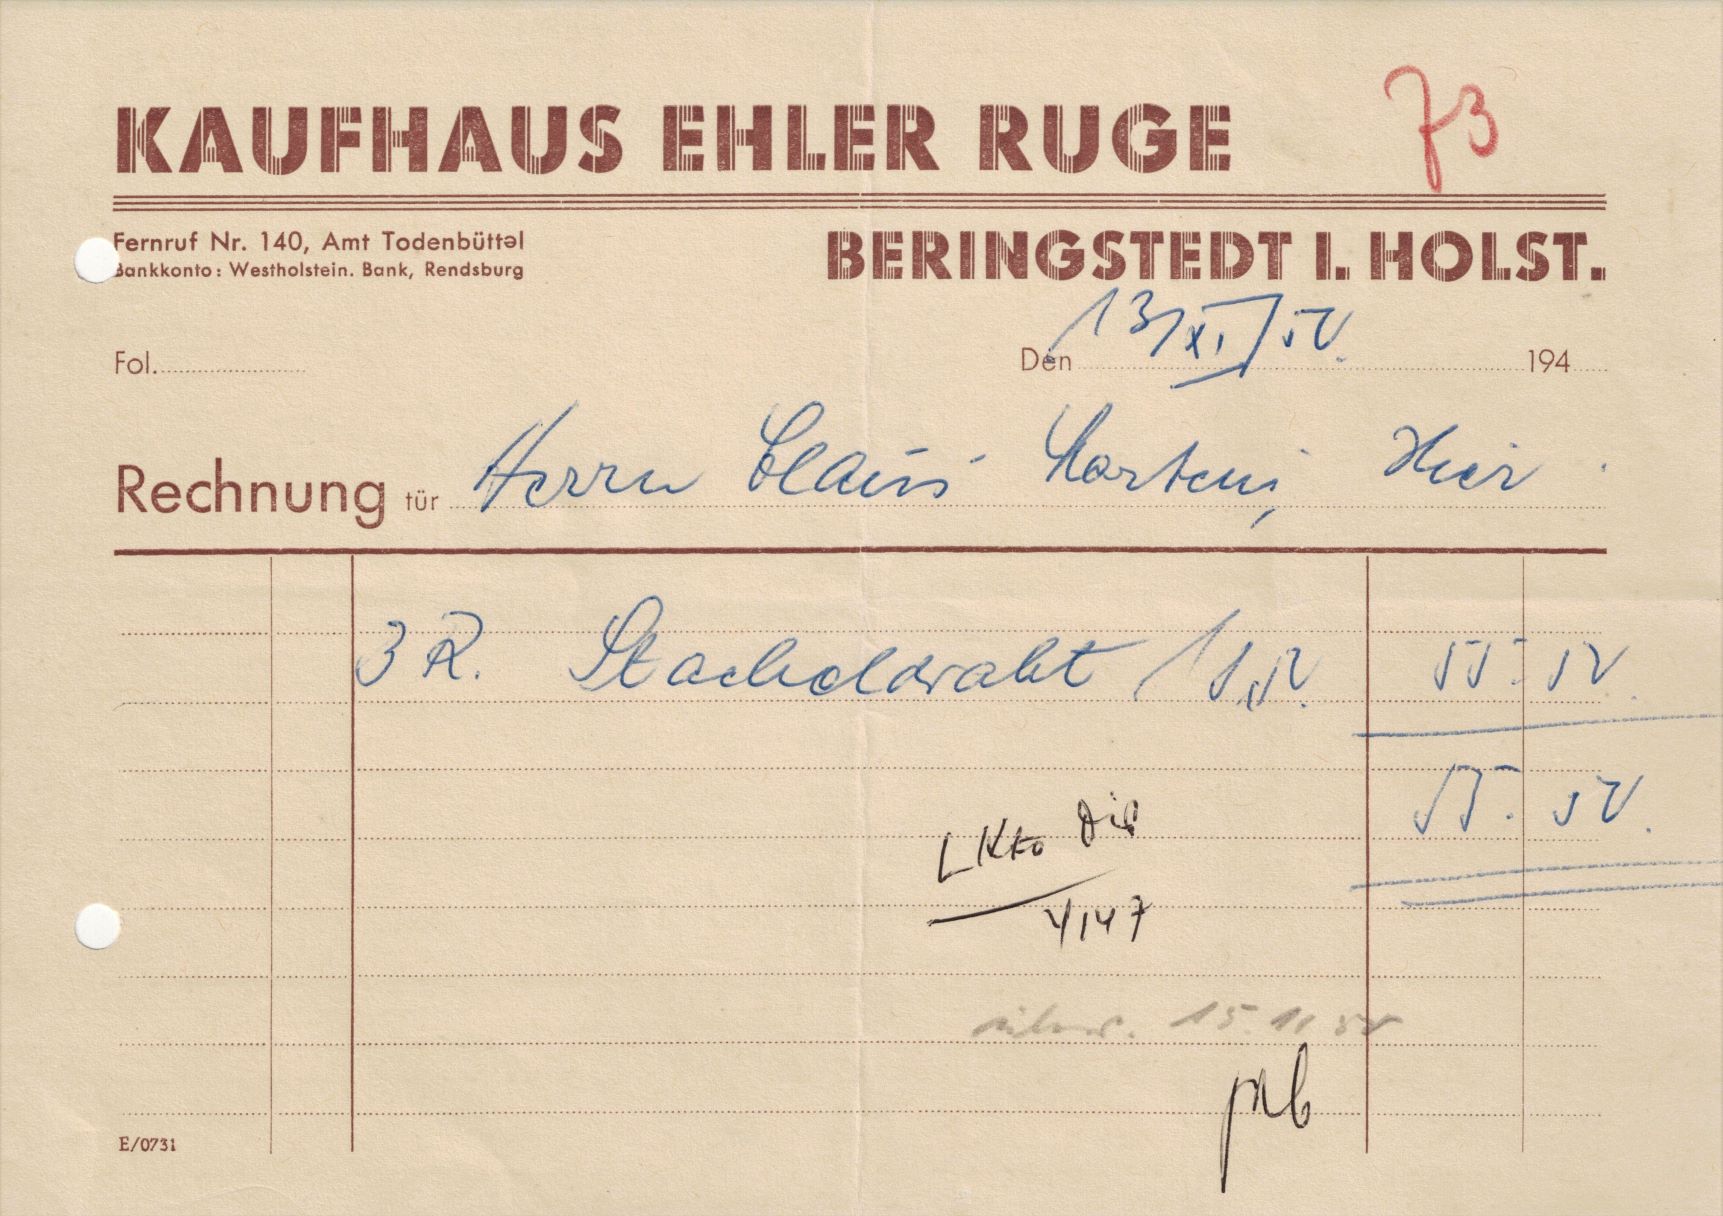 73
KAUFHAUS EHLER RUGE
Fernruf Nr. 140, Amt Todenbüttel
Bankkonto: Westholstein. Bank, Rendsburg
BERINGSTEDT I. HOLST.
Fol.
Den 13/XI/50. 194
Rechnung für Herrn Claus Martens, Hier.
3 R. Stacheldraht / 18,50. 55.50.
55.50.
Kto
4147
überw. 15.11.50
E/0731